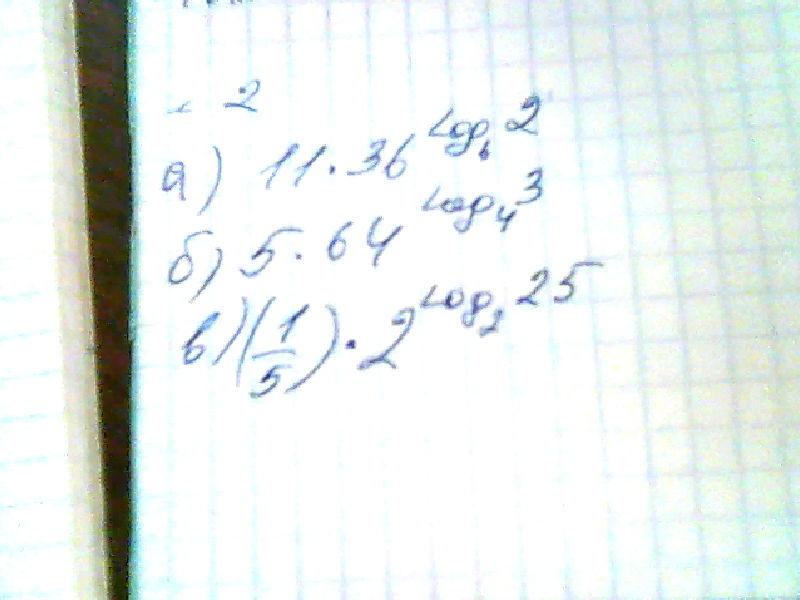 2
а) 11·36^log₆2
б) 5·64^log₄3
в) (1/5)·2^log₂25